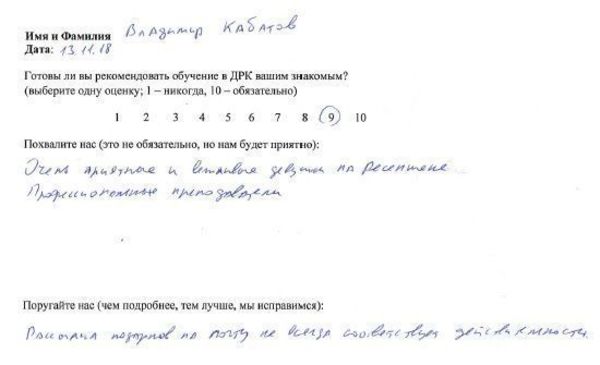 Имя и Фамилия Владимир Кабатов
Дата: 13.11.18
Готовы ли вы рекомендовать обучение в ДРК вашим знакомым?
(выберите одну оценку; 1 – никогда, 10 – обязательно)
1 2 3 4 5 6 7 8 9 10
Похвалите нас (это не обязательно, но нам будет приятно):
Очень приятные и вежливые девушки на ресепшене.
Профессиональные преподаватели
Поругайте нас (чем подробнее, тем лучше, мы исправимся):
Рассылка на почту не всегда соответствует действительности.